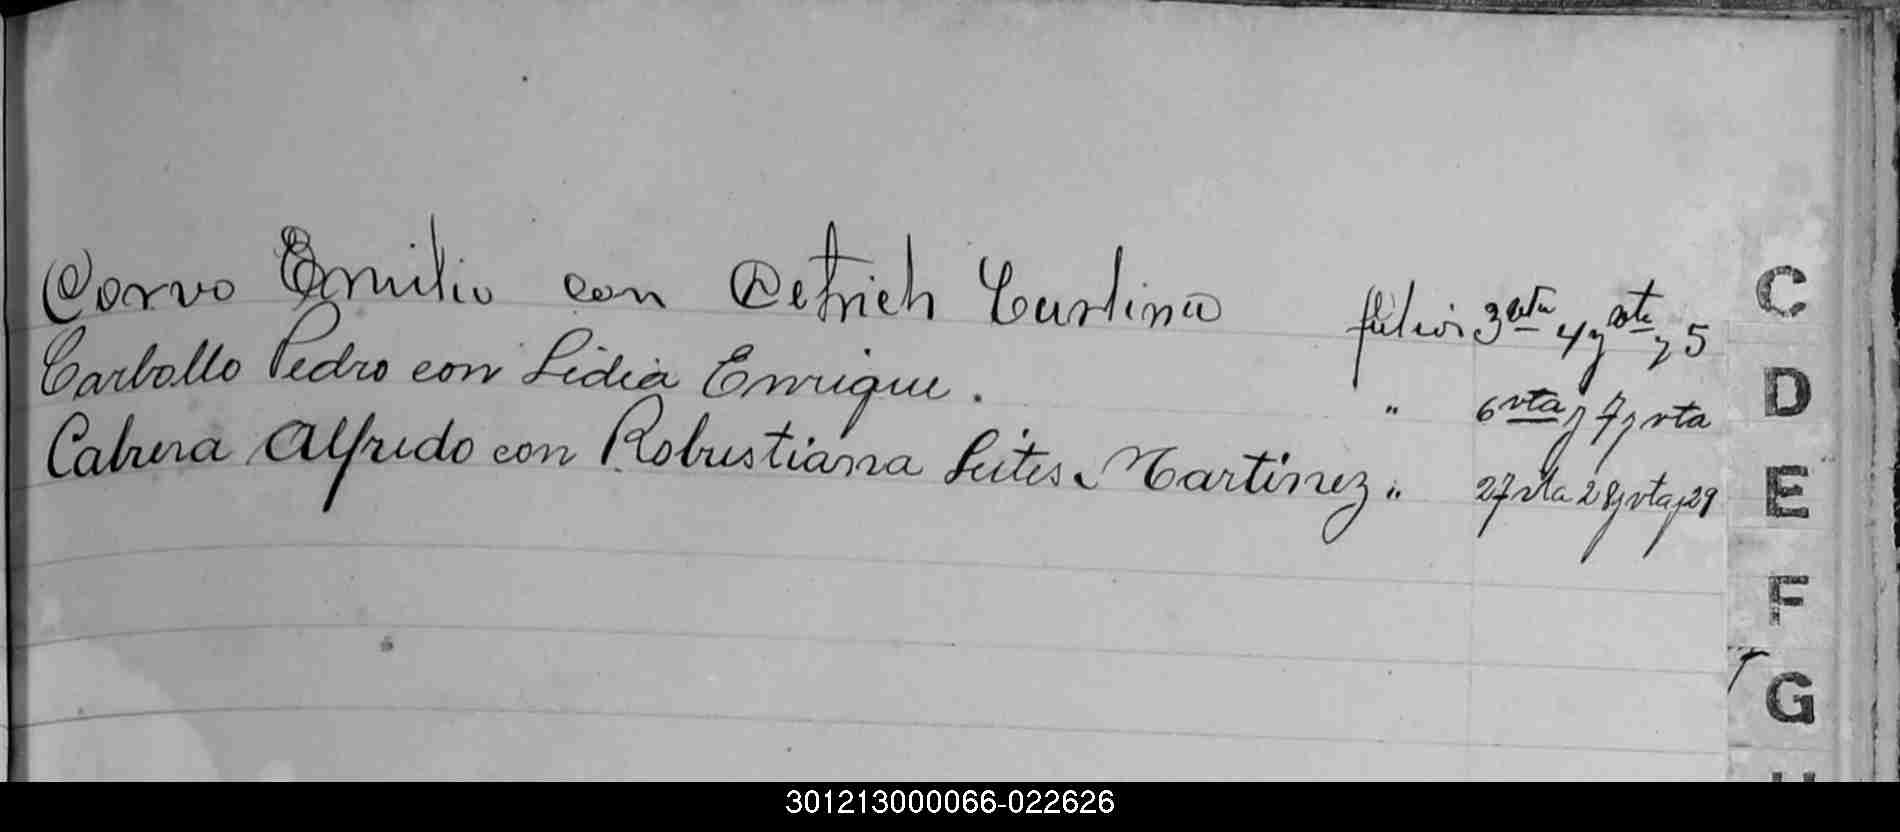 Corvo Emilio con Detrich Carlina folios 3 vta 4 y vta y 5
Carballo Pedro con Lidia Enrique. " 6 vta y 7 y vta
Cabrera Alfredo con Robustiana Leites Martinez " 27 vta 28 y vta y 29
C
D
E
F
G
301213000066-022626